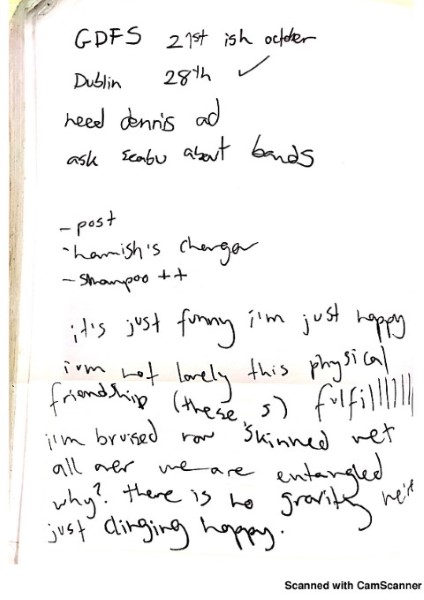 GDFS 21st ish october
Dublin 28th ✓
need dennis ad
ask seabu about bands
- post
- hamish's charger
- shampoo ++
it's just funny i'm just happy
ivm not lonely this physical
friendship (these, s) fulfilllllll
i'm bruised raw skinned wet
all over we are entangled
why? there is no gravity
just clinging happy.
Scanned with CamScanner